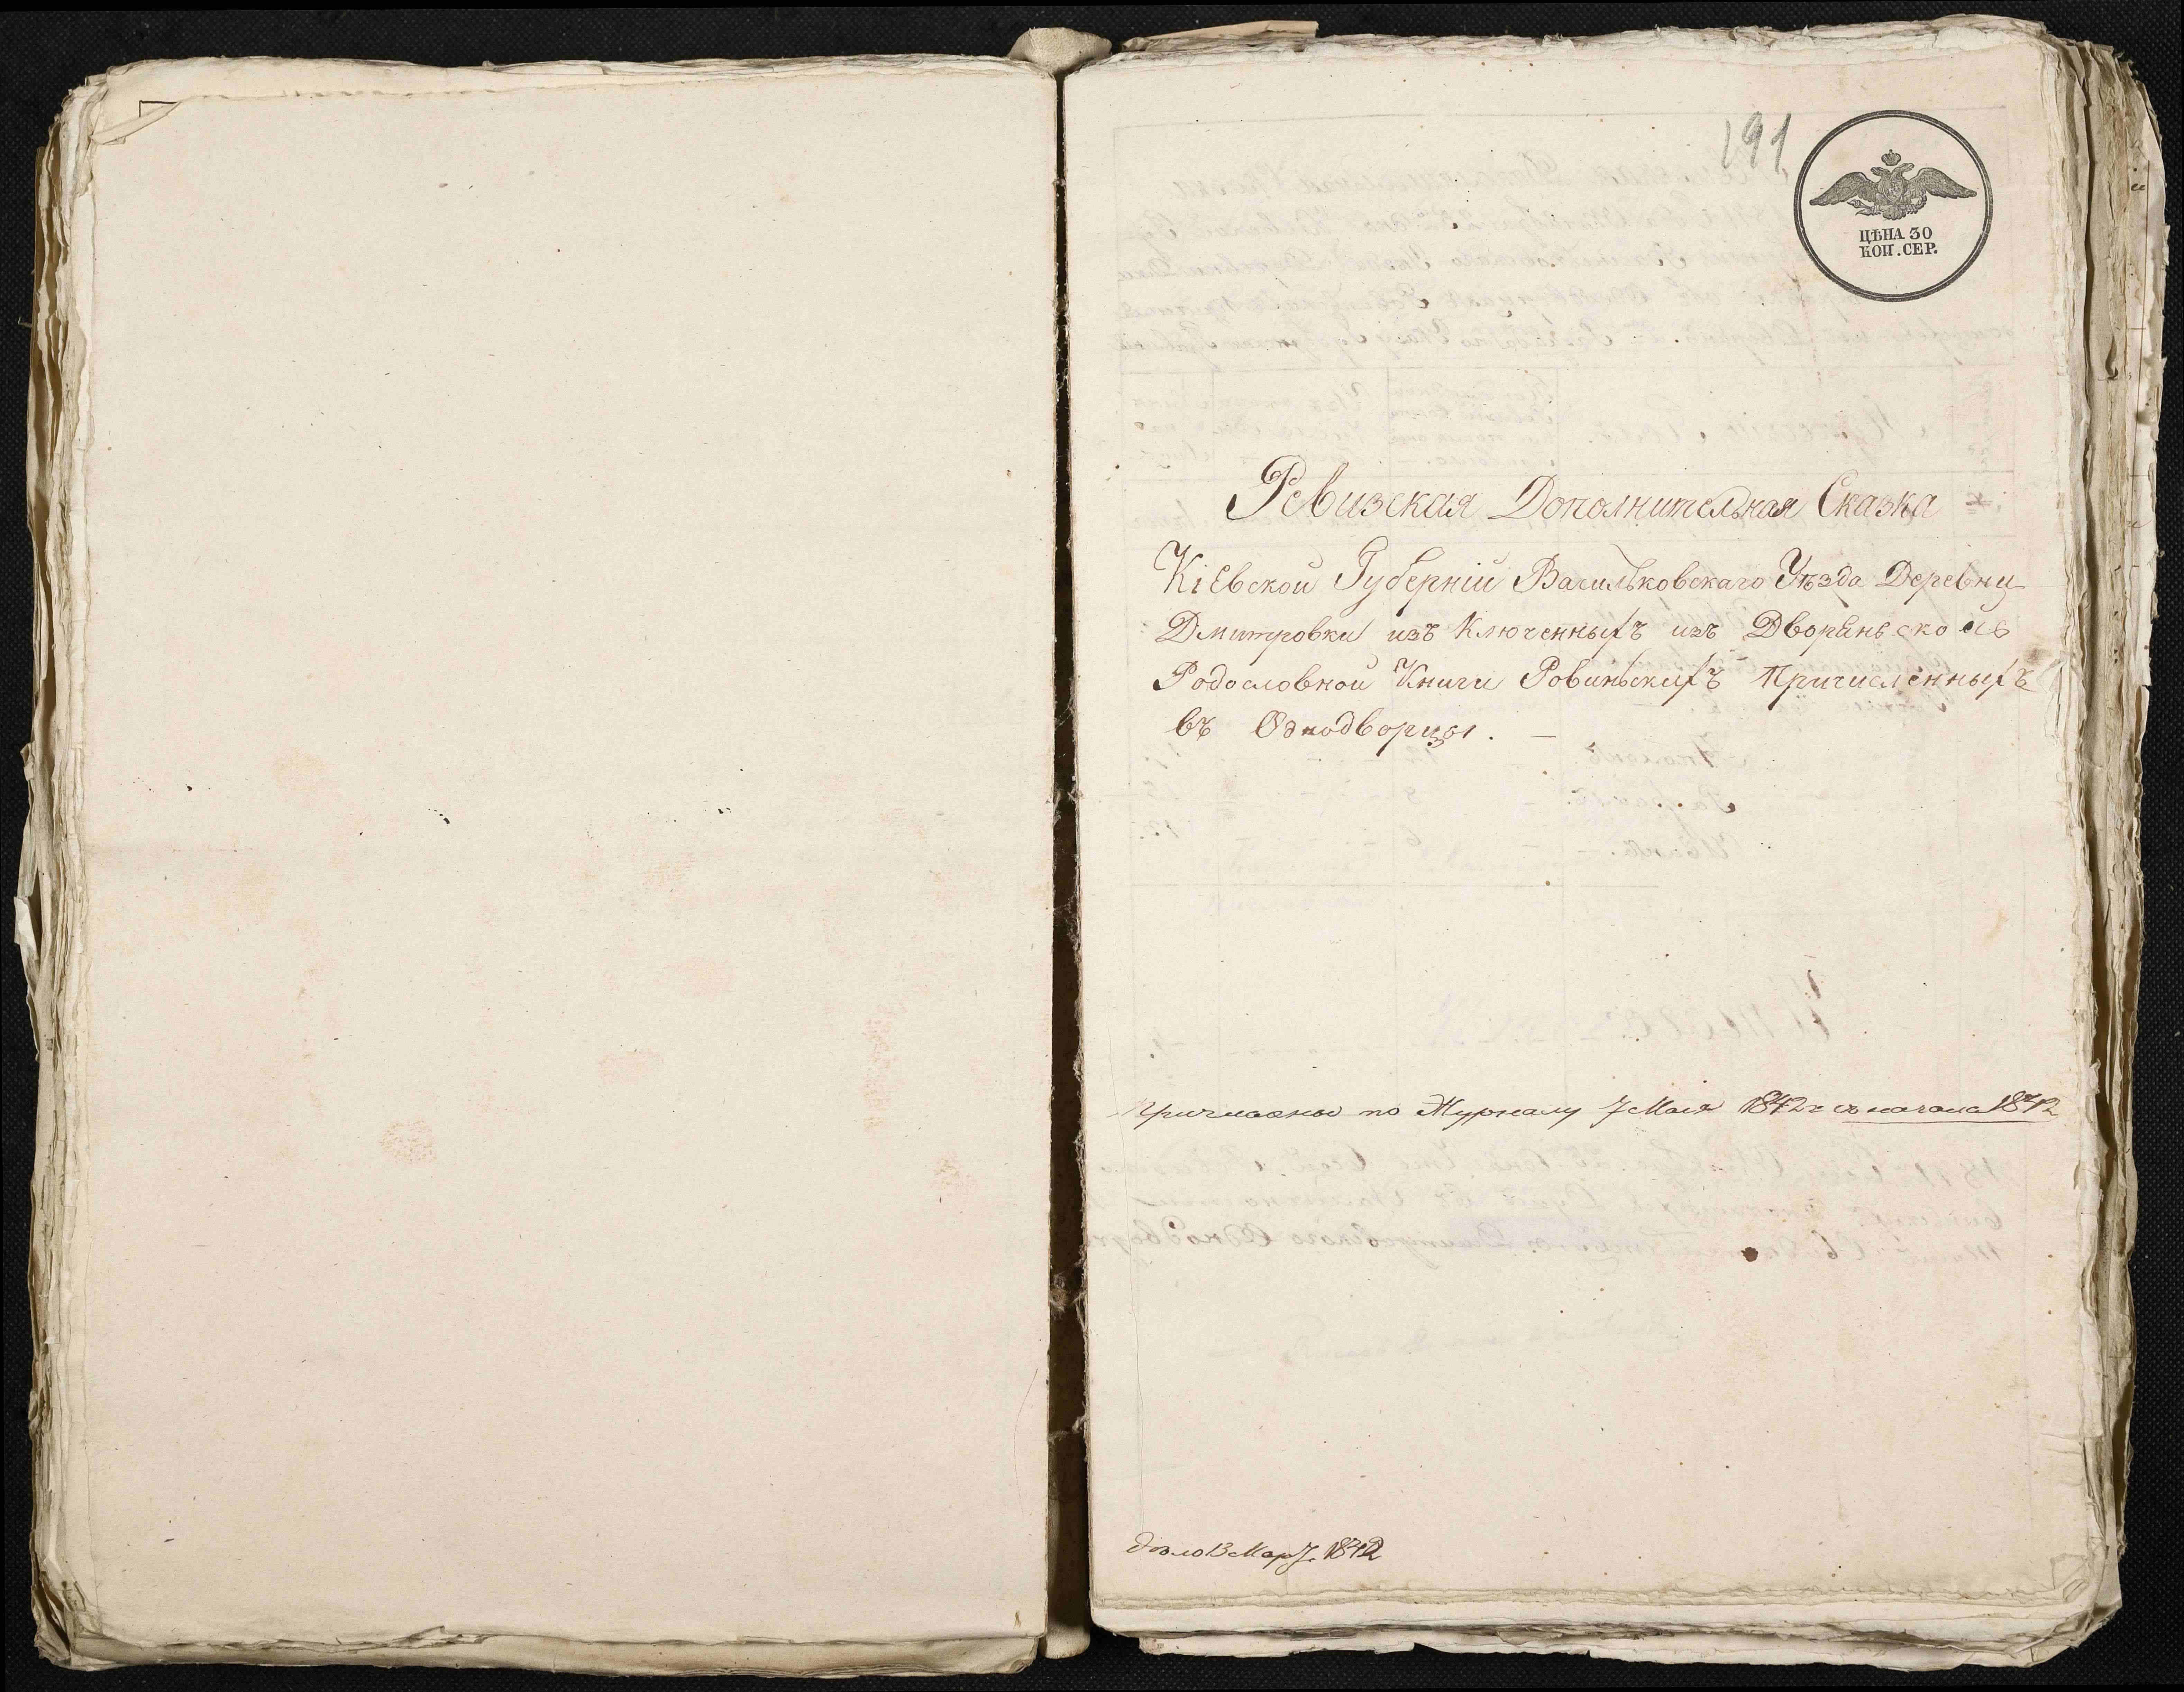 191
ЦѢНА 30
КОП. СЕР.
Ревизская Дополнительная Сказка
Кіевской Губерніи Васильковскаго Уѣзда Деревни
Дмитровки изъ Ключенныхъ изъ Дворяньской
Родословной Книги Ровиньскихъ Причисленныхъ
въ Однодворцы. —
Причислены по Журналу 7 Мая 1842 г съ начала 1842
13 Мар 1842